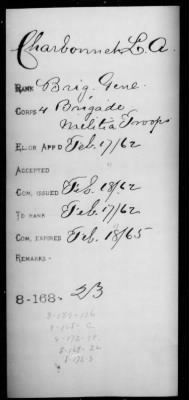 Charbonnet L. A.
RANK Brig. Genl.
CORPS 4 Brigade
Militia Troops
EL. OR APP'D Feb. 17/62
ACCEPTED
COM. ISSUED Feb. 18/62
TO RANK Feb. 17/62
COM. EXPIRED Feb. 18/65
REMARKS.
8-168. 23
8-165- C
8-168- 22